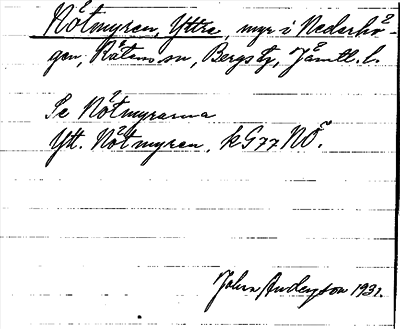 Nötmyren, Yttre, myr i Nederhö-
gen, Rätans sn, Bergs tg, Jämtl. l.
Se Nötmyrarna
Ytt. Nötmyren, kG77NÖ.
John Anderson 1931.